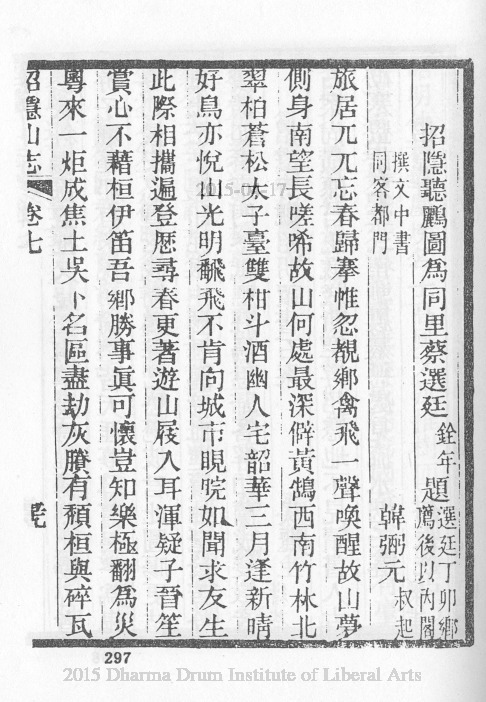 招隱聽鸝圖為同里蔡選廷銓年題選廷丁卯鄉
薦後以內閣
撰文中書
同客都門
韓弼元叔起
旅居兀兀忘春歸搴帷忽覩鄉禽飛一聲喚醒故山夢
側身南望長嗟唏故山何處最深僻黃鵠西南竹林北
翠柏蒼松太子臺雙柑斗酒幽人宅韶華三月逢新晴
好鳥亦悅山光明翻飛不肯向城市睍睆如聞求友生
此際相攜遍登歷尋春更著遊山屐入耳渾疑子晉笙
賞心不藉桓伊笛吾鄉勝事眞可懷豈知樂極翻為災
粵來一炬成焦土吳卜名區盡劫灰賸有頹桓與碎瓦
招隱山志 卷七
297
2015 Dharma Drum Institute of Liberal Arts